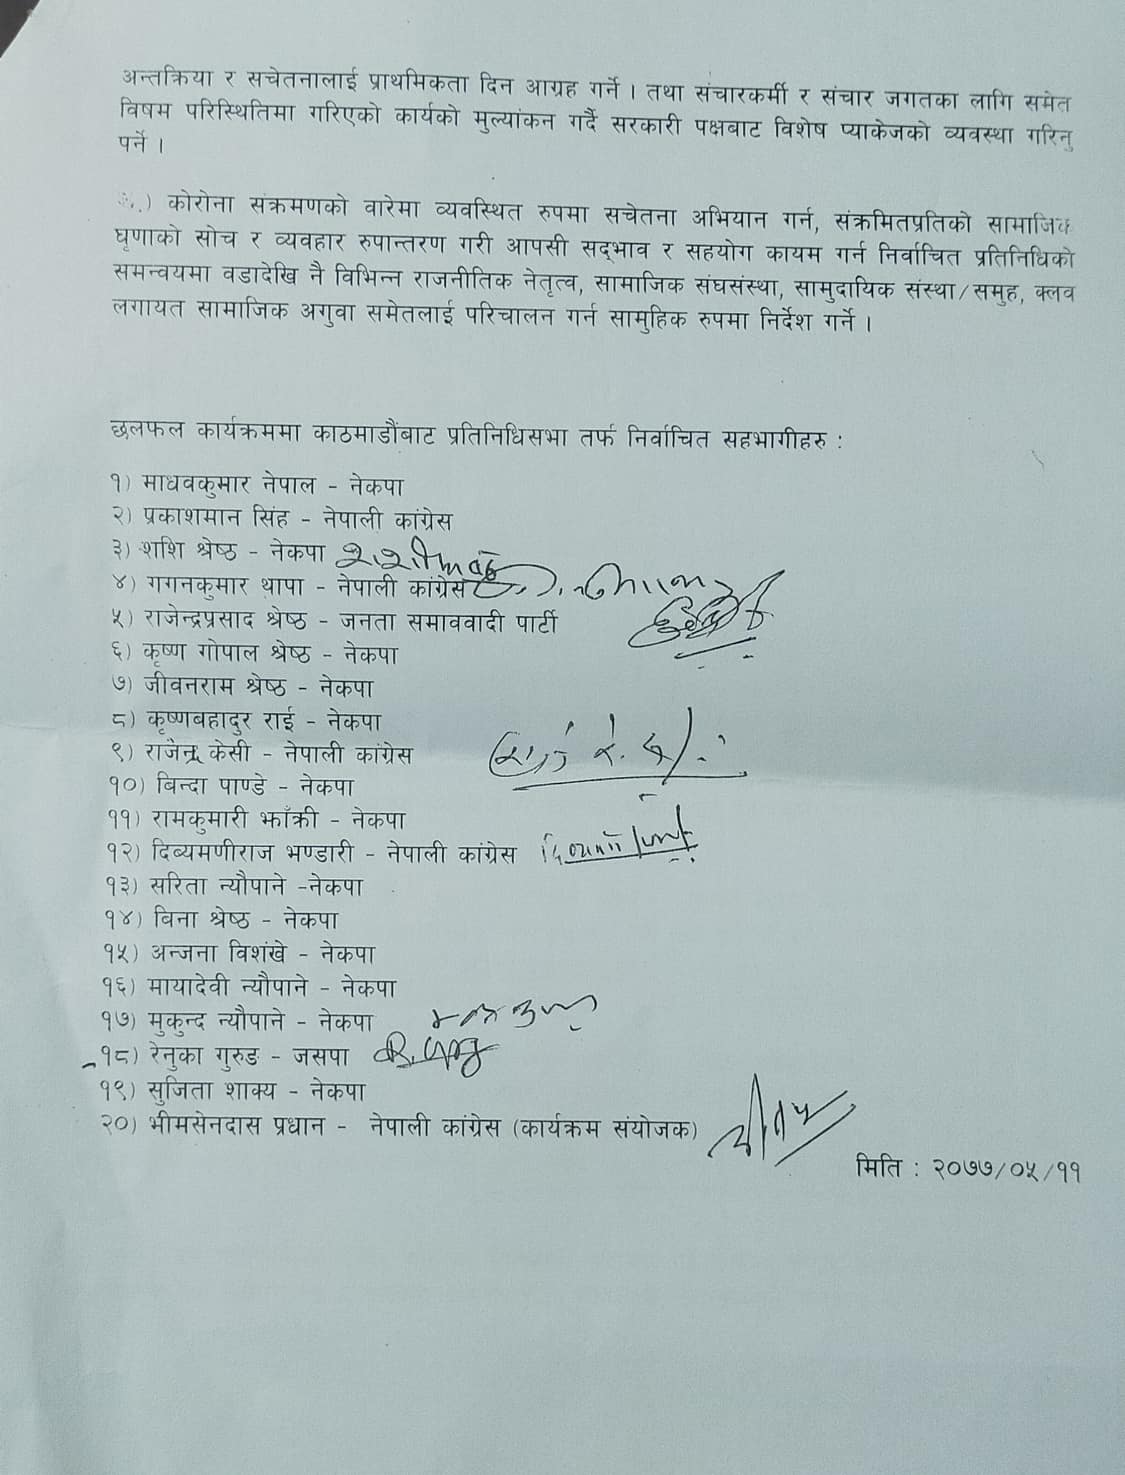 अन्तक्रिया र सचेतनालाई प्राथमिकता दिन आग्रह गर्ने । तथा संचारकर्मी र संचार जगतका लागि समेत
विषम परिस्थितिमा गरिएको कार्यको मुल्यांकन गर्दै सरकारी पक्षबाट विशेष प्याकेजको व्यवस्था गरिनु
पर्ने ।
कोरोना संक्रमणको वारेमा व्यवस्थित रुपमा सचेतना अभियान गर्न, संक्रमितप्रतिको सामाजिक
घृणाको सोच र व्यवहार रुपान्तरण गरी आपसी सद्भाव र सहयोग कायम गर्न निर्वाचित प्रतिनिधिको
समन्वयमा वडादेखि नै विभिन्न राजनीतिक नेतृत्व, सामाजिक संघसंस्था, सामुदायिक संस्था/समुह, क्लव
लगायत सामाजिक अगुवा समेतलाई परिचालन गर्न सामुहिक रुपमा निर्देश गर्ने ।
छलफल कार्यक्रममा काठमाडौंबाट प्रतिनिधिसभा तर्फ निर्वाचित सहभागीहरु :
१) माधवकुमार नेपाल - नेकपा
२) प्रकाशमान सिंह - नेपाली कांग्रेस
३) शशि श्रेष्ठ - नेकपा
४) गगनकुमार थापा - नेपाली कांग्रेस
५) राजेन्द्रप्रसाद श्रेष्ठ - जनता समाववादी पार्टी
६) कृष्ण गोपाल श्रेष्ठ - नेकपा
७) जीवनराम श्रेष्ठ - नेकपा
८) कृष्णबहादुर राई - नेकपा
९) राजेन्द्र केसी - नेपाली कांग्रेस
१०) बिन्दा पाण्डे - नेकपा
११) रामकुमारी झाँक्री - नेकपा
१२) दिब्यमणीराज भण्डारी - नेपाली कांग्रेस
१३) सरिता न्यौपाने -नेकपा
१४) बिना श्रेष्ठ - नेकपा
१५) अन्जना विशंखे - नेकपा
१६) मायादेवी न्यौपाने - नेकपा
१७) मुकुन्द न्यौपाने - नेकपा
१८) रेनुका गुरुङ - जसपा
१९) सुजिता शाक्य - नेकपा
२०) भीमसेनदास प्रधान - नेपाली कांग्रेस (कार्यक्रम संयोजक)
मिति : २०७७/०५/११